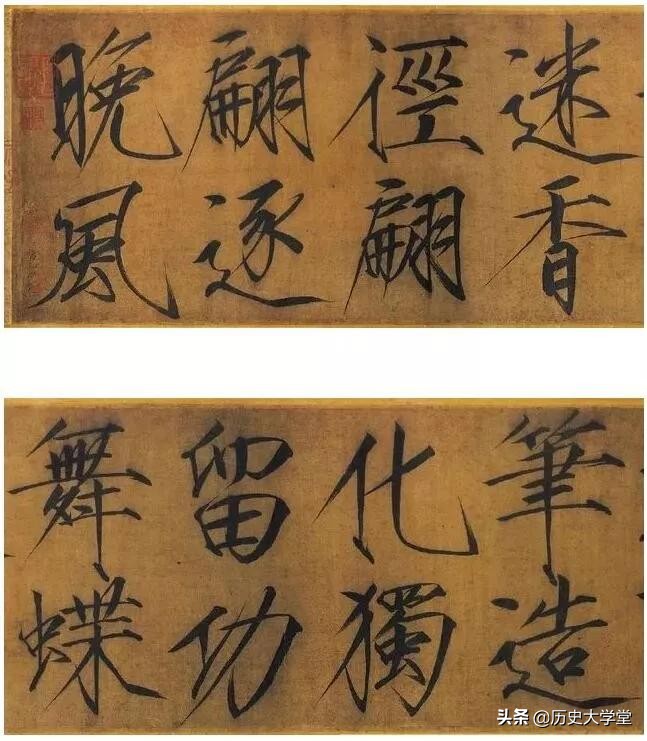 迷香
徑翩
翩逐
晚風
筆造
化獨
留功
舞蝶
头条 @历史大学堂